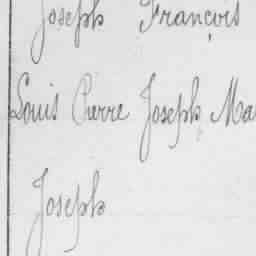 Joseph François
Louis Pierre Joseph Ma
Joseph